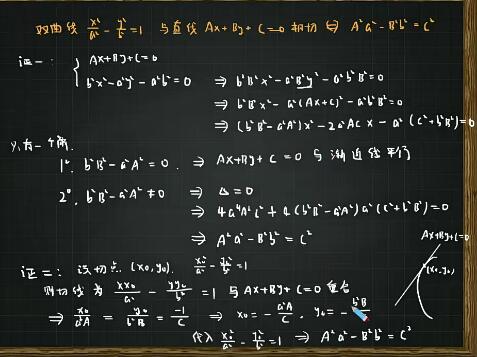 双曲线 x²/a² - y²/b² = 1 与直线 Ax+By+C=0 相切 ⇔ A²a² - B²b² = C²
证一: { Ax+By+C=0
b²x² - a²y² - a²b² = 0 ⇒ b²B²x² - a²B²y² - a²b²B² = 0
⇒ b²B²x² - a²(Ax+C)² - a²b²B² = 0
⇒ (b²B² - a²A²)x² - 2a²ACx - a²(C²+b²B²) = 0
只有一个解
1° b²B² - a²A² = 0. ⇒ Ax+By+C=0 与渐近线平行
2° b²B² - a²A² ≠ 0 ⇒ Δ=0
⇒ 4a⁴A²C² + 4(b²B² - a²A²)a²(C²+b²B²) = 0
⇒ A²a² - B²b² = C²
Ax+By+C=0
(x₀,y₀)
证二: 设切点 (x₀,y₀). x₀²/a² - y₀²/b² = 1
则切线为 xx₀/a² - yy₀/b² = 1 与 Ax+By+C=0 重合
⇒ x₀/a²A = -y₀/b²B = -1/C ⇒ x₀ = -a²A/C . y₀ = - b²B
代入 x₀²/a² - y₀²/b² = 1 ⇒ A²a² - B²b² = C²